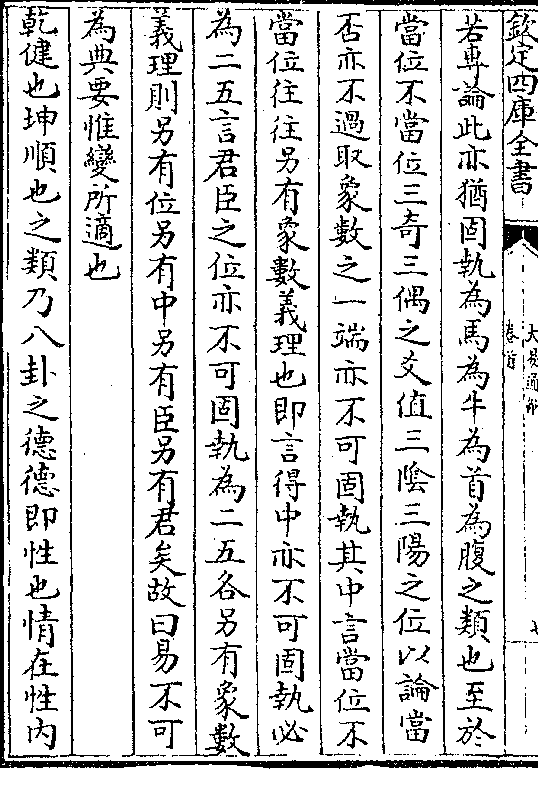 欽定四庫全書
大易通解
卷首
七
若專論此亦猶固執為馬為牛為首為腹之類也至於
當位不當位三奇三偶之爻值三陰三陽之位以論當
否亦不過取象數之一端亦不可固執其中言當位不
當位往往另有象數義理也即言得中亦不可固執必
為二五言君臣之位亦不可固執為二五各另有象數
義理則另有位另有中另有臣另有君矣故曰易不可
為典要惟變所適也
乾健也坤順也之類乃八卦之德德即性也情在性內